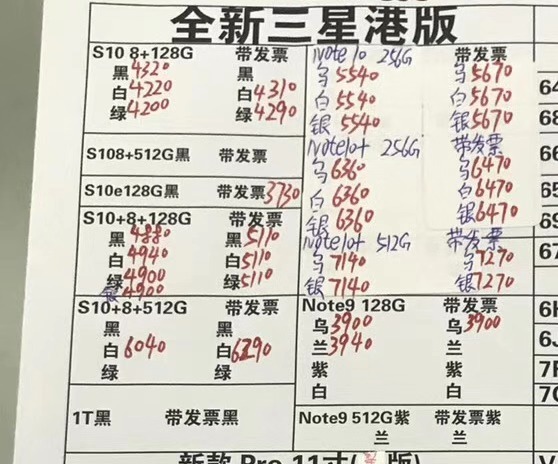 全新三星港版
S10 8+128G 带发票
黑4320 黑
白4220 白4310
绿4200 绿4290
S108+512G黑 带发票
S10e128G黑 带发票3730
S10+8+128G 带发票
黑4880 黑5110
白4940 白5110
绿4900 绿5110
银4900
S10+8+512G 带发票
黑 黑
白6040 白6290
绿 绿
1T黑 带发票黑
Note10 256G 带发票
乌5540 乌5670
白5540 白5670
银5540 银5670
Note10+ 256G 带发票
乌6360 乌6470
白6360 白6470
银6360 银6470
Note10+ 512G 带发票
乌7140 乌7270
银7140 银7270
Note9 128G 带发票
乌3900 乌3900
兰3940 兰
紫 紫
白 白
Note9 512G紫 带发票紫
兰 兰
64
68
66
65
69
67
6J
70